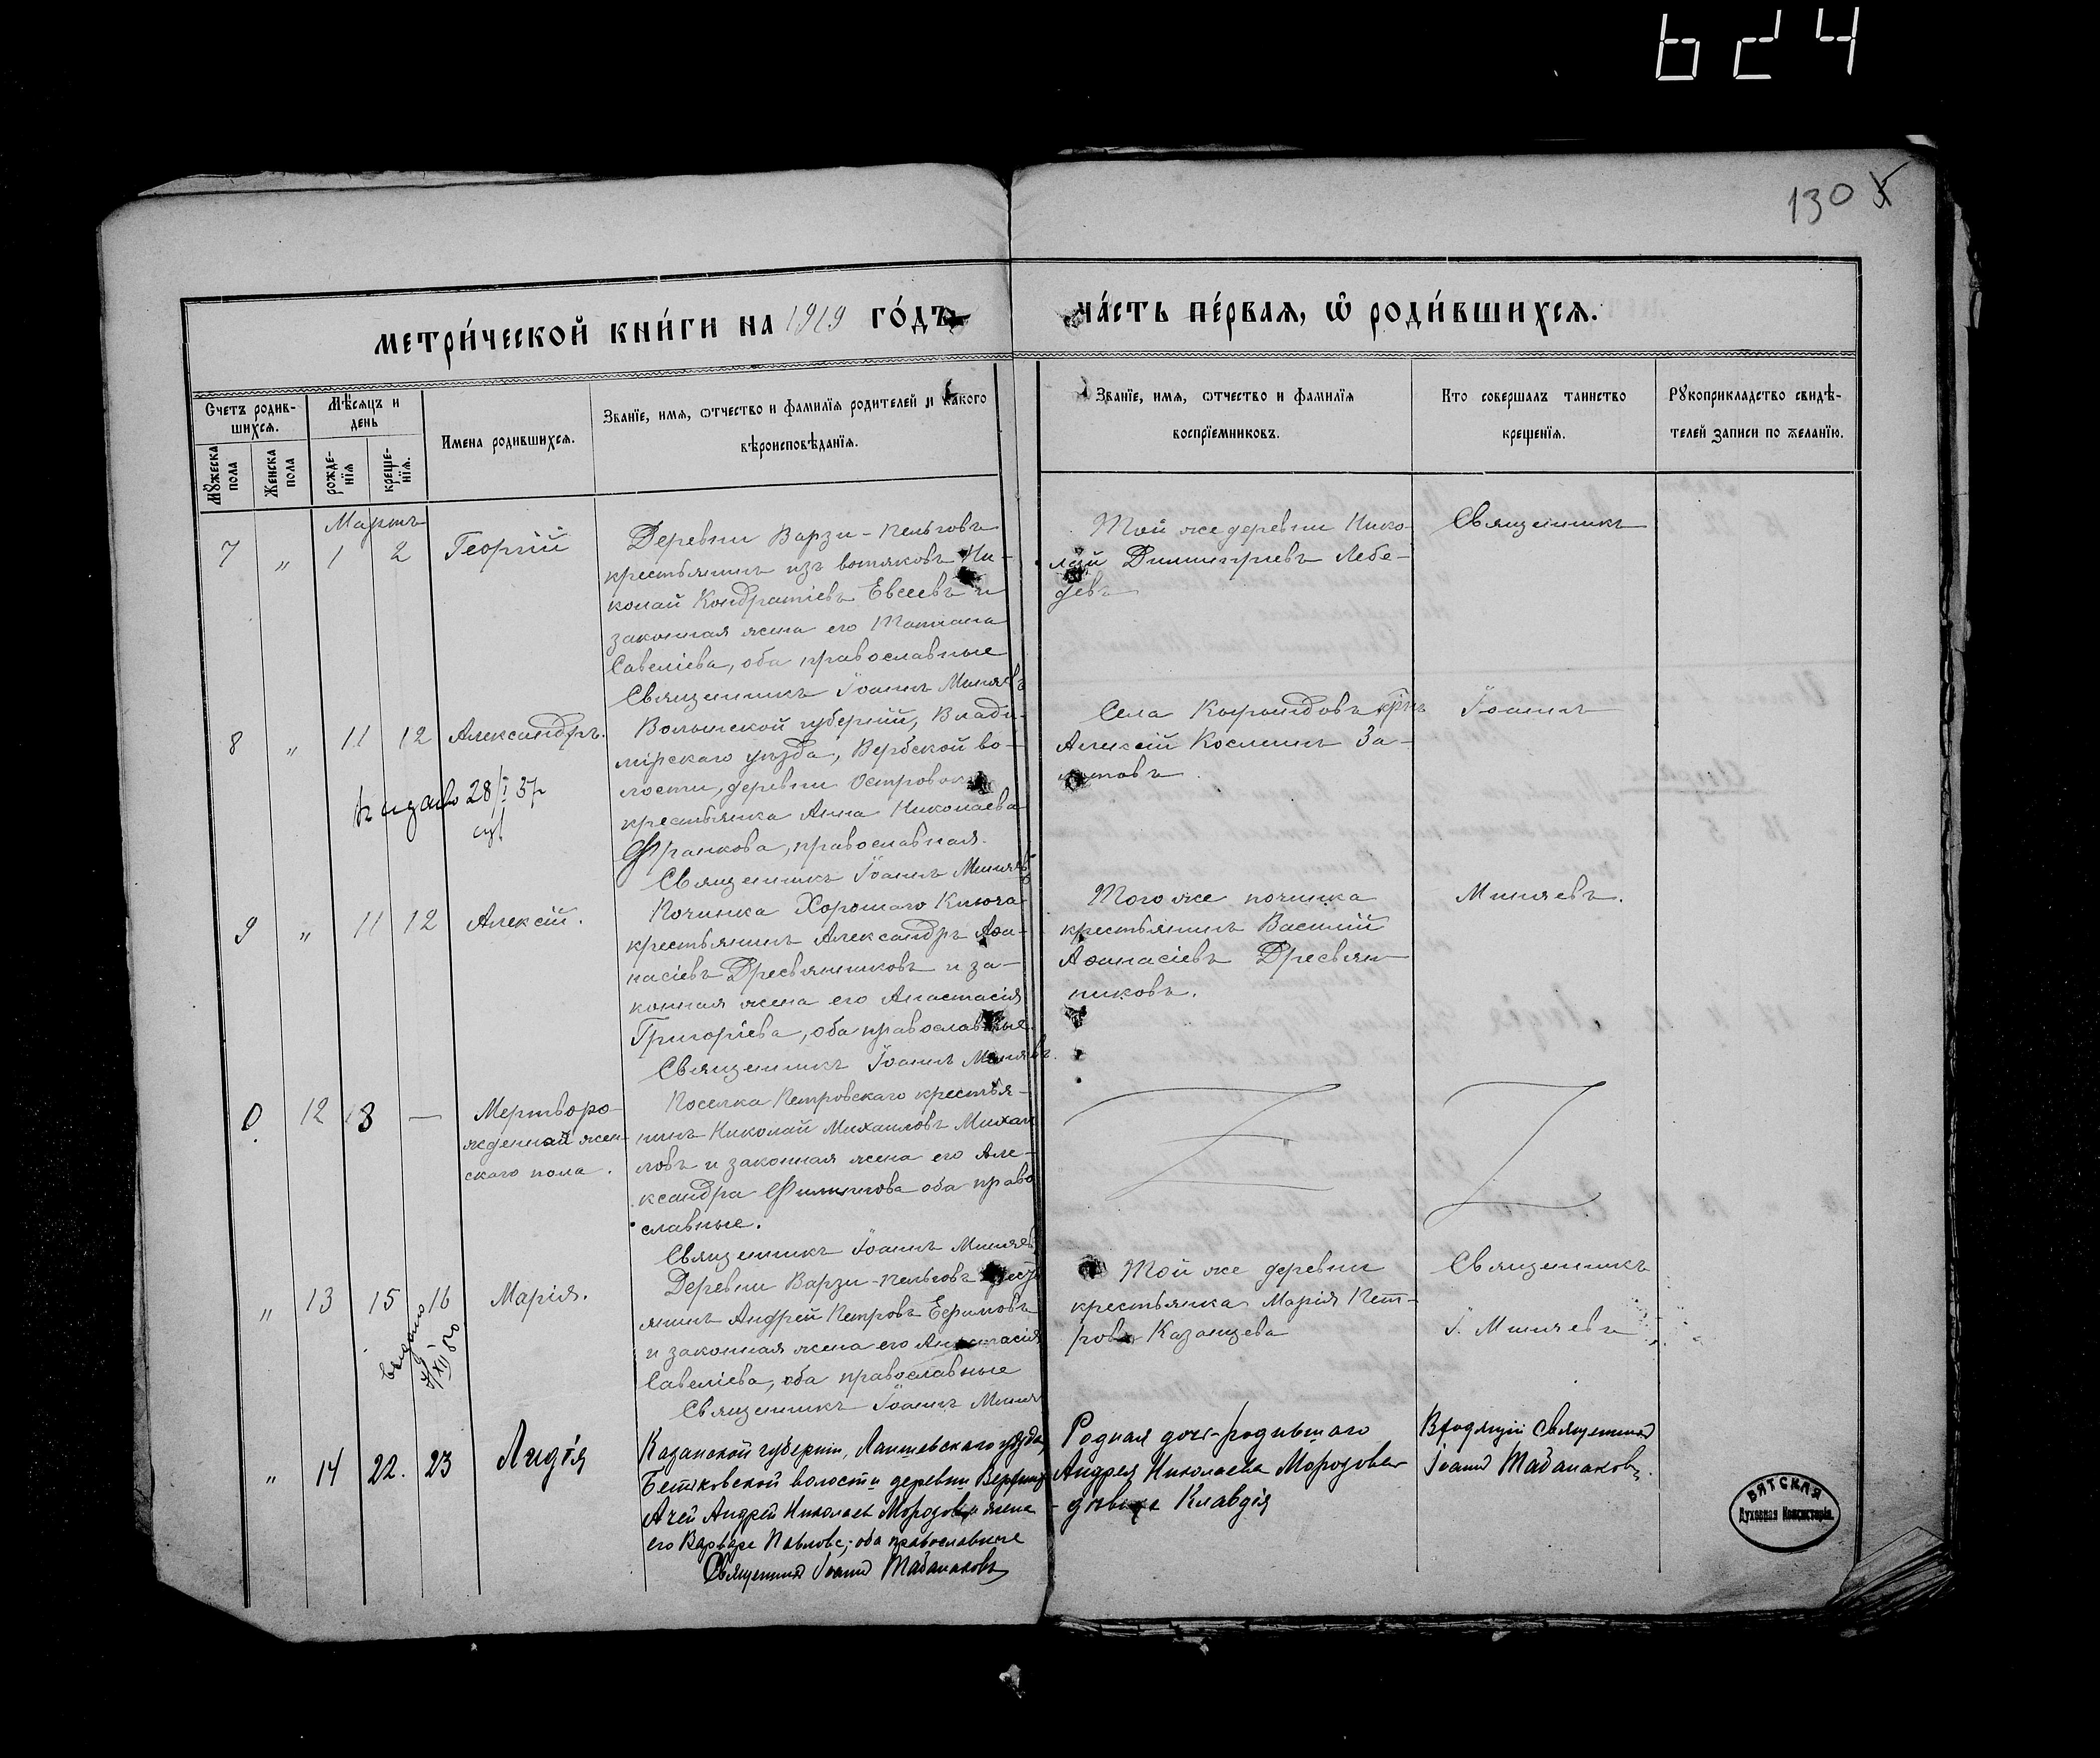 624
130
МЕТРИ́ЧЕСКОЙ КНИ́ГИ НА 1919 ГО́ДЪ
ЧА́СТЬ ПЕ́РВАЯ, Ѿ РОДИ́ВШИХСЯ.
Счетъ родив-
шихся.
Мѣсяцъ и
день
Имена родившихся.
Званїе, имя, ѿтчество и фамилїя родителей и какого
вѣроисповѣданїя.
Мꙋжеска
пола
Женска
пола
рожде-
нїя
креще-
нїя.
Званїе, имя, ѿтчество и фамилїя
воспрїемниковъ.
Кто совершалъ таинство
крещенїя.
Рꙋкоприкладство свидѣ-
телей записи по желанїю.
Мартъ
7 „ 1 2 Георгій
Деревни Варзи-Пельговъ
крестьянинъ изъ вотяковъ Ни-
колай Кондратіевъ Евсеевъ и
законная жена его Татиана
Савеліева, оба православные
Священникъ Іоаннъ Миняевъ
Той же деревни Нико-
лай Димитриевъ Лебе-
девъ
Священникъ
8 „ 11 12 Александръ.
28/I 37
Волынской губерніи, Влади-
мірскаго уѣзда, Вербской во-
лости, деревни Островокъ
крестьянка Анна Николаева
Франкова, православная.
Священникъ Іоаннъ Миняевъ
Села
Алексій Косминъ За-
Іоаннъ
9 „ 11 12 Алексій.
Починка Хорошаго Ключа
крестьянинъ Александръ Аѳа-
насіевъ Дресвянниковъ и за-
конная жена его Анастасія
Григоріева, оба православные
Священникъ Іоаннъ Миняевъ.
Того же починка
крестьянинъ Василій
Аѳанасіевъ Дресвян-
никовъ.
Миняевъ.
12 18 — Мертворо-
жденный жен-
скаго пола.
Поселка Петровскаго крестья-
нинъ Николай Михаиловъ Михаи
ловъ и законная жена его Але-
ксандра Филиппова оба право
славные.
Священникъ Іоаннъ Миняевъ
„ 13 15 16 Марія.
выдано
Деревни Варзи-Пельговъ
янинъ Андрей Петровъ Ефимовъ
и законная жена его Анастасія
Савеліева, оба православные
Священникъ Іоаннъ Миняе
Той же деревни
крестьянка Марія Пет-
рова Казанцева
Священникъ
І. Миняевъ
„ 14 22. 23 Лидія
Казанской губерніи, Лаишевскаго уѣзда,
волости деревни
Андрей Николаевъ Морозовъ и жена
его Варвара Павлова, оба православные
Священникъ Іоаннъ Табанаковъ
Родная дочь родившаго
Андрея Николаева Морозова
дѣвица Клавдія
священникъ
Іоаннъ Табанаковъ.
ВЯТСКАЯ
Духовная Консисторія.